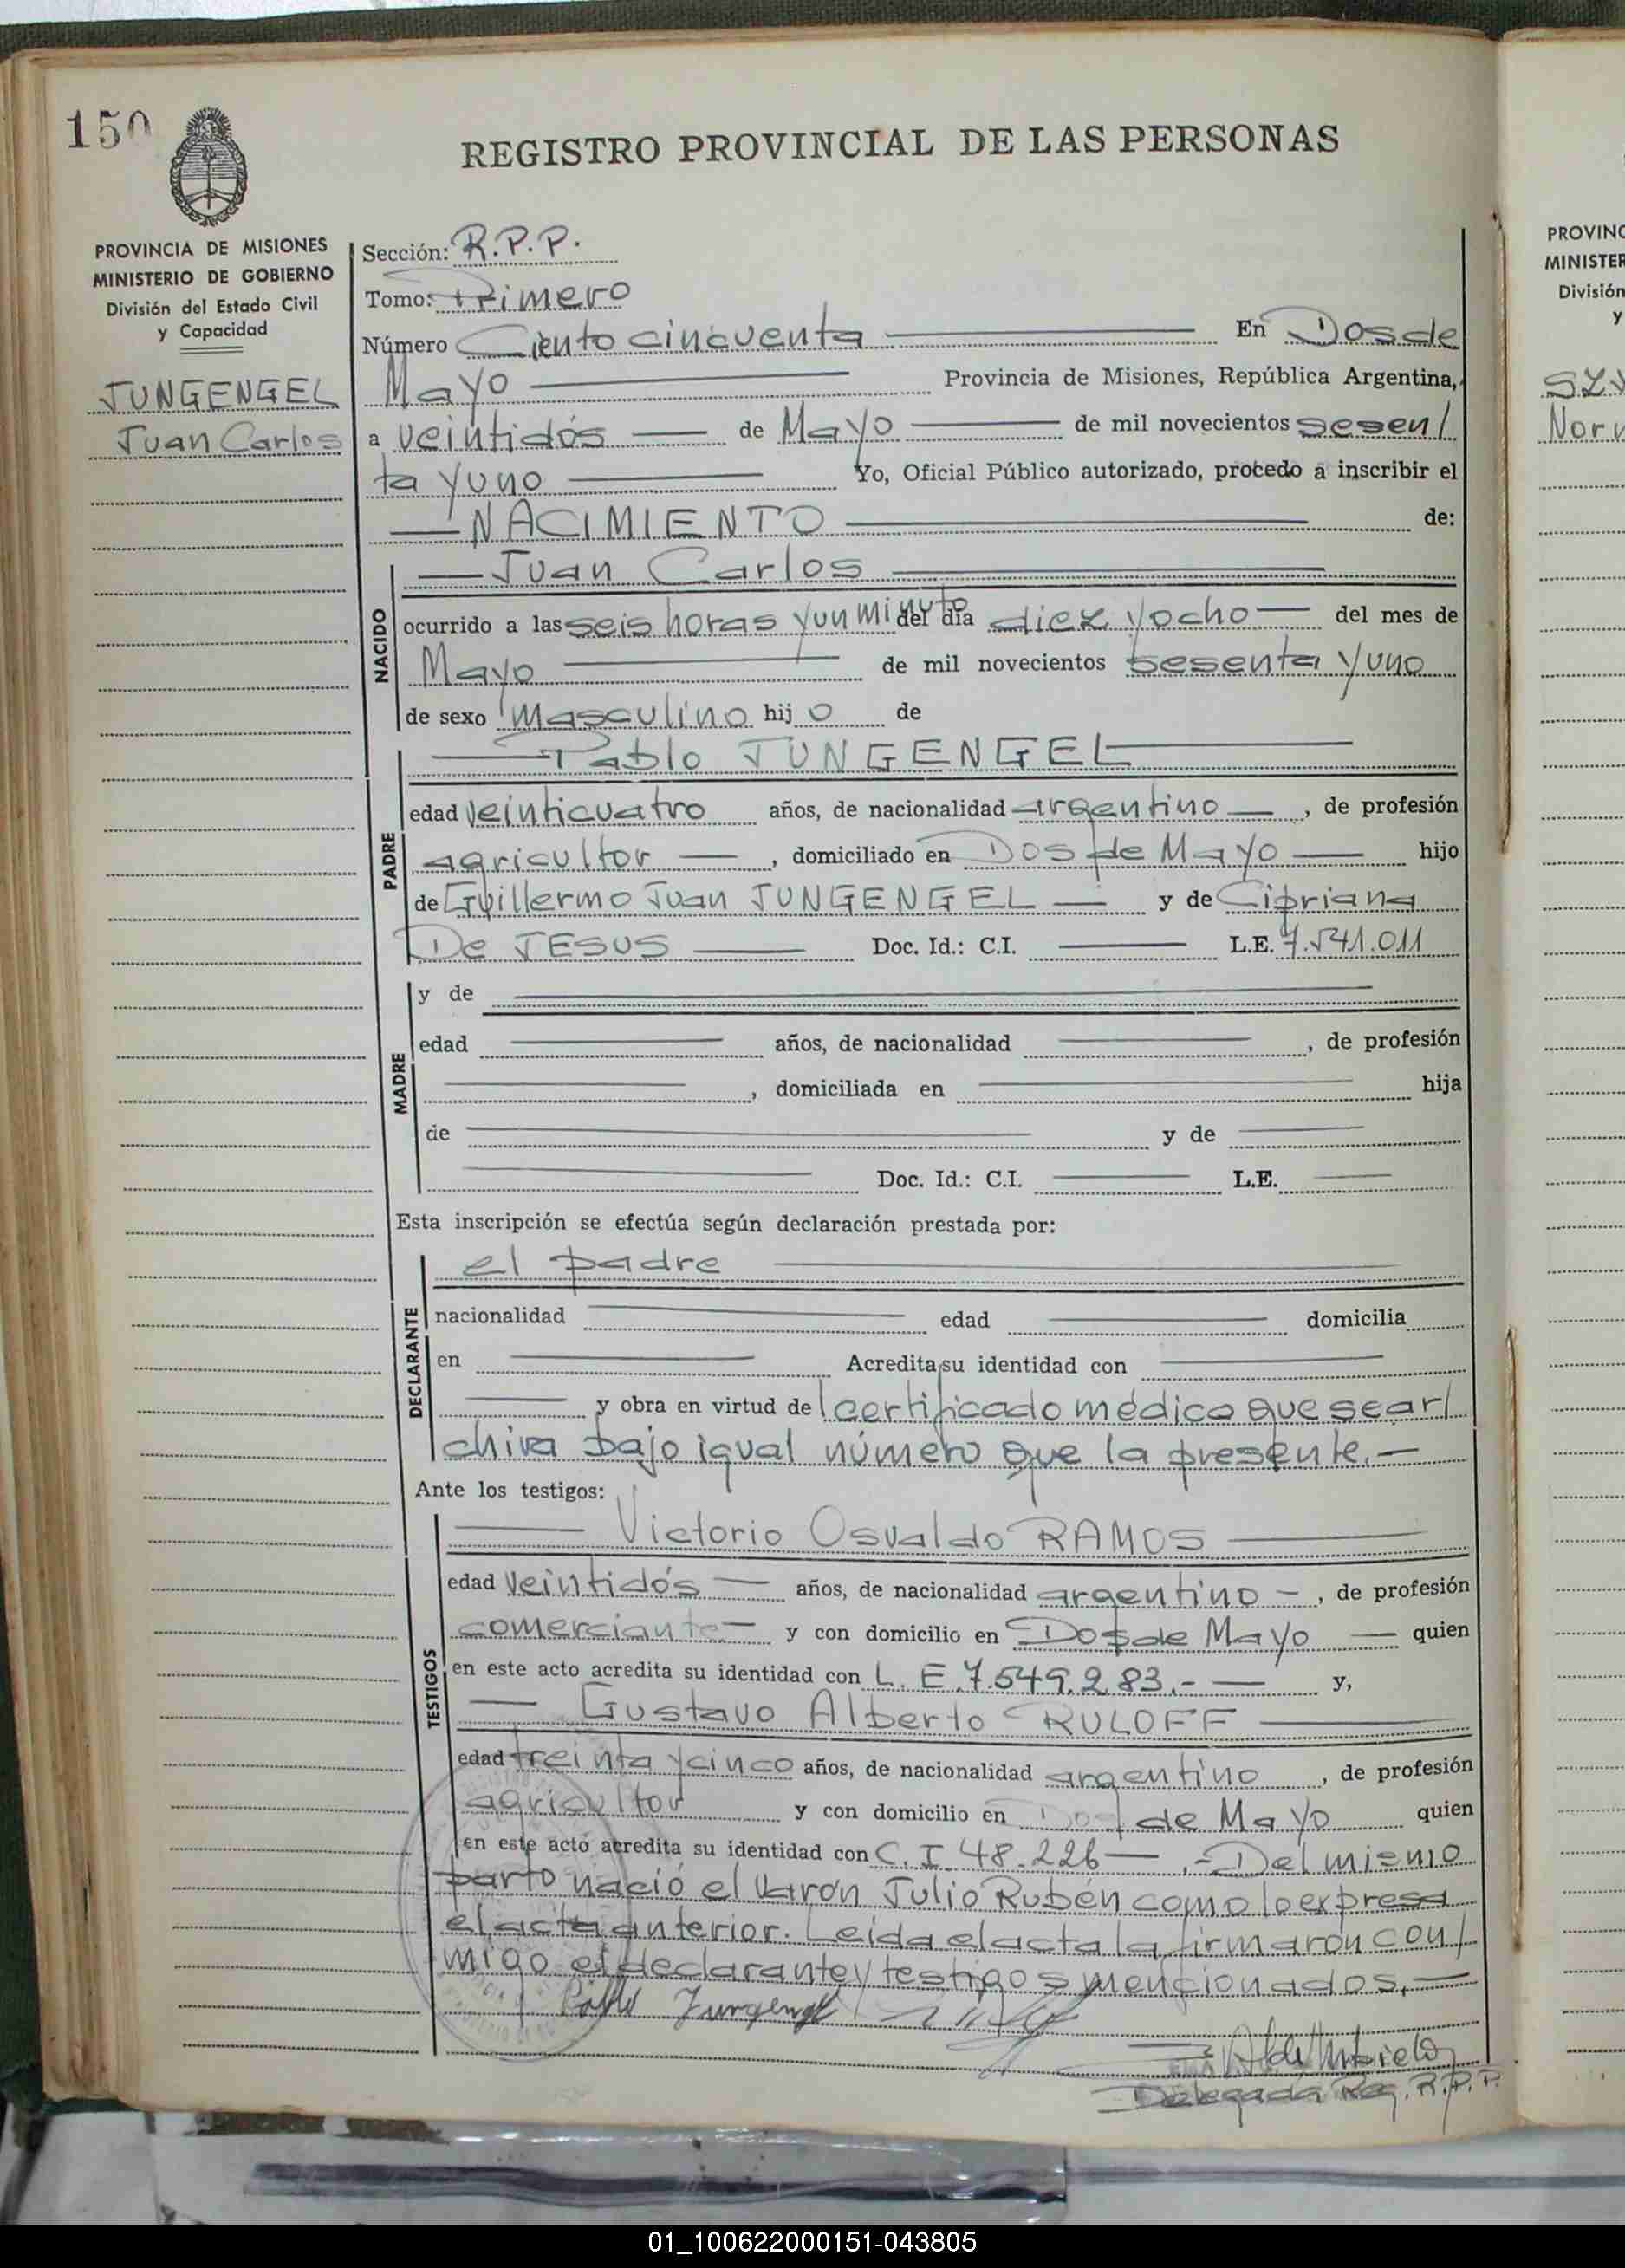 150
REGISTRO PROVINCIAL DE LAS PERSONAS
PROVINCIA DE MISIONES
MINISTERIO DE GOBIERNO
División del Estado Civil
y Capacidad
JUNGENGEL
Juan Carlos
Sección: R.P.P.
Tomo: Primero
Número Ciento cincuenta En Dos de
Mayo Provincia de Misiones, República Argentina,
a veintidós de Mayo de mil novecientos sesen/
ta y uno Yo, Oficial Público autorizado, procedo a inscribir el
NACIMIENTO de:
NACIDO
Juan Carlos
ocurrido a las seis horas y un minuto del día diez y ocho del mes de
Mayo de mil novecientos sesenta y uno
de sexo masculino hijo de
PADRE
Pablo JUNGENGEL
edad veinticuatro años, de nacionalidad argentino, de profesión
agricultor, domiciliado en Dos de Mayo hijo
de Guillermo Juan JUNGENGEL y de Cipriana
De JESUS Doc. Id.: C.I. L.E. 7.541.011
MADRE
y de
edad años, de nacionalidad , de profesión
, domiciliada en hija
de y de
Doc. Id.: C.I. L.E.
Esta inscripción se efectúa según declaración prestada por:
DECLARANTE
el padre
nacionalidad edad domicilia
en Acredita su identidad con
y obra en virtud de certificado médico que se ar/
chiva bajo igual número que la presente.-
Ante los testigos:
TESTIGOS
Victorio Osvaldo RAMOS
edad veintidós años, de nacionalidad argentino -, de profesión
comerciante y con domicilio en Dos de Mayo quien
en este acto acredita su identidad con L. E. 7.549.283.- y,
Gustavo Alberto RULOFF
edad treinta y cinco años, de nacionalidad argentino, de profesión
agricultor y con domicilio en Dos de Mayo quien
en este acto acredita su identidad con C. I. 48.226 -.- Del mismo
parto nació el varón Julio Rubén como lo expresa
el acta anterior. Leída el acta la firmaron con/
migo el declarante y testigos mencionados.-
Pablo Jungengel
Delegada Reg. R.P.P.
PROVINC
MINISTER
División
y
Nor
01_100622000151-043805